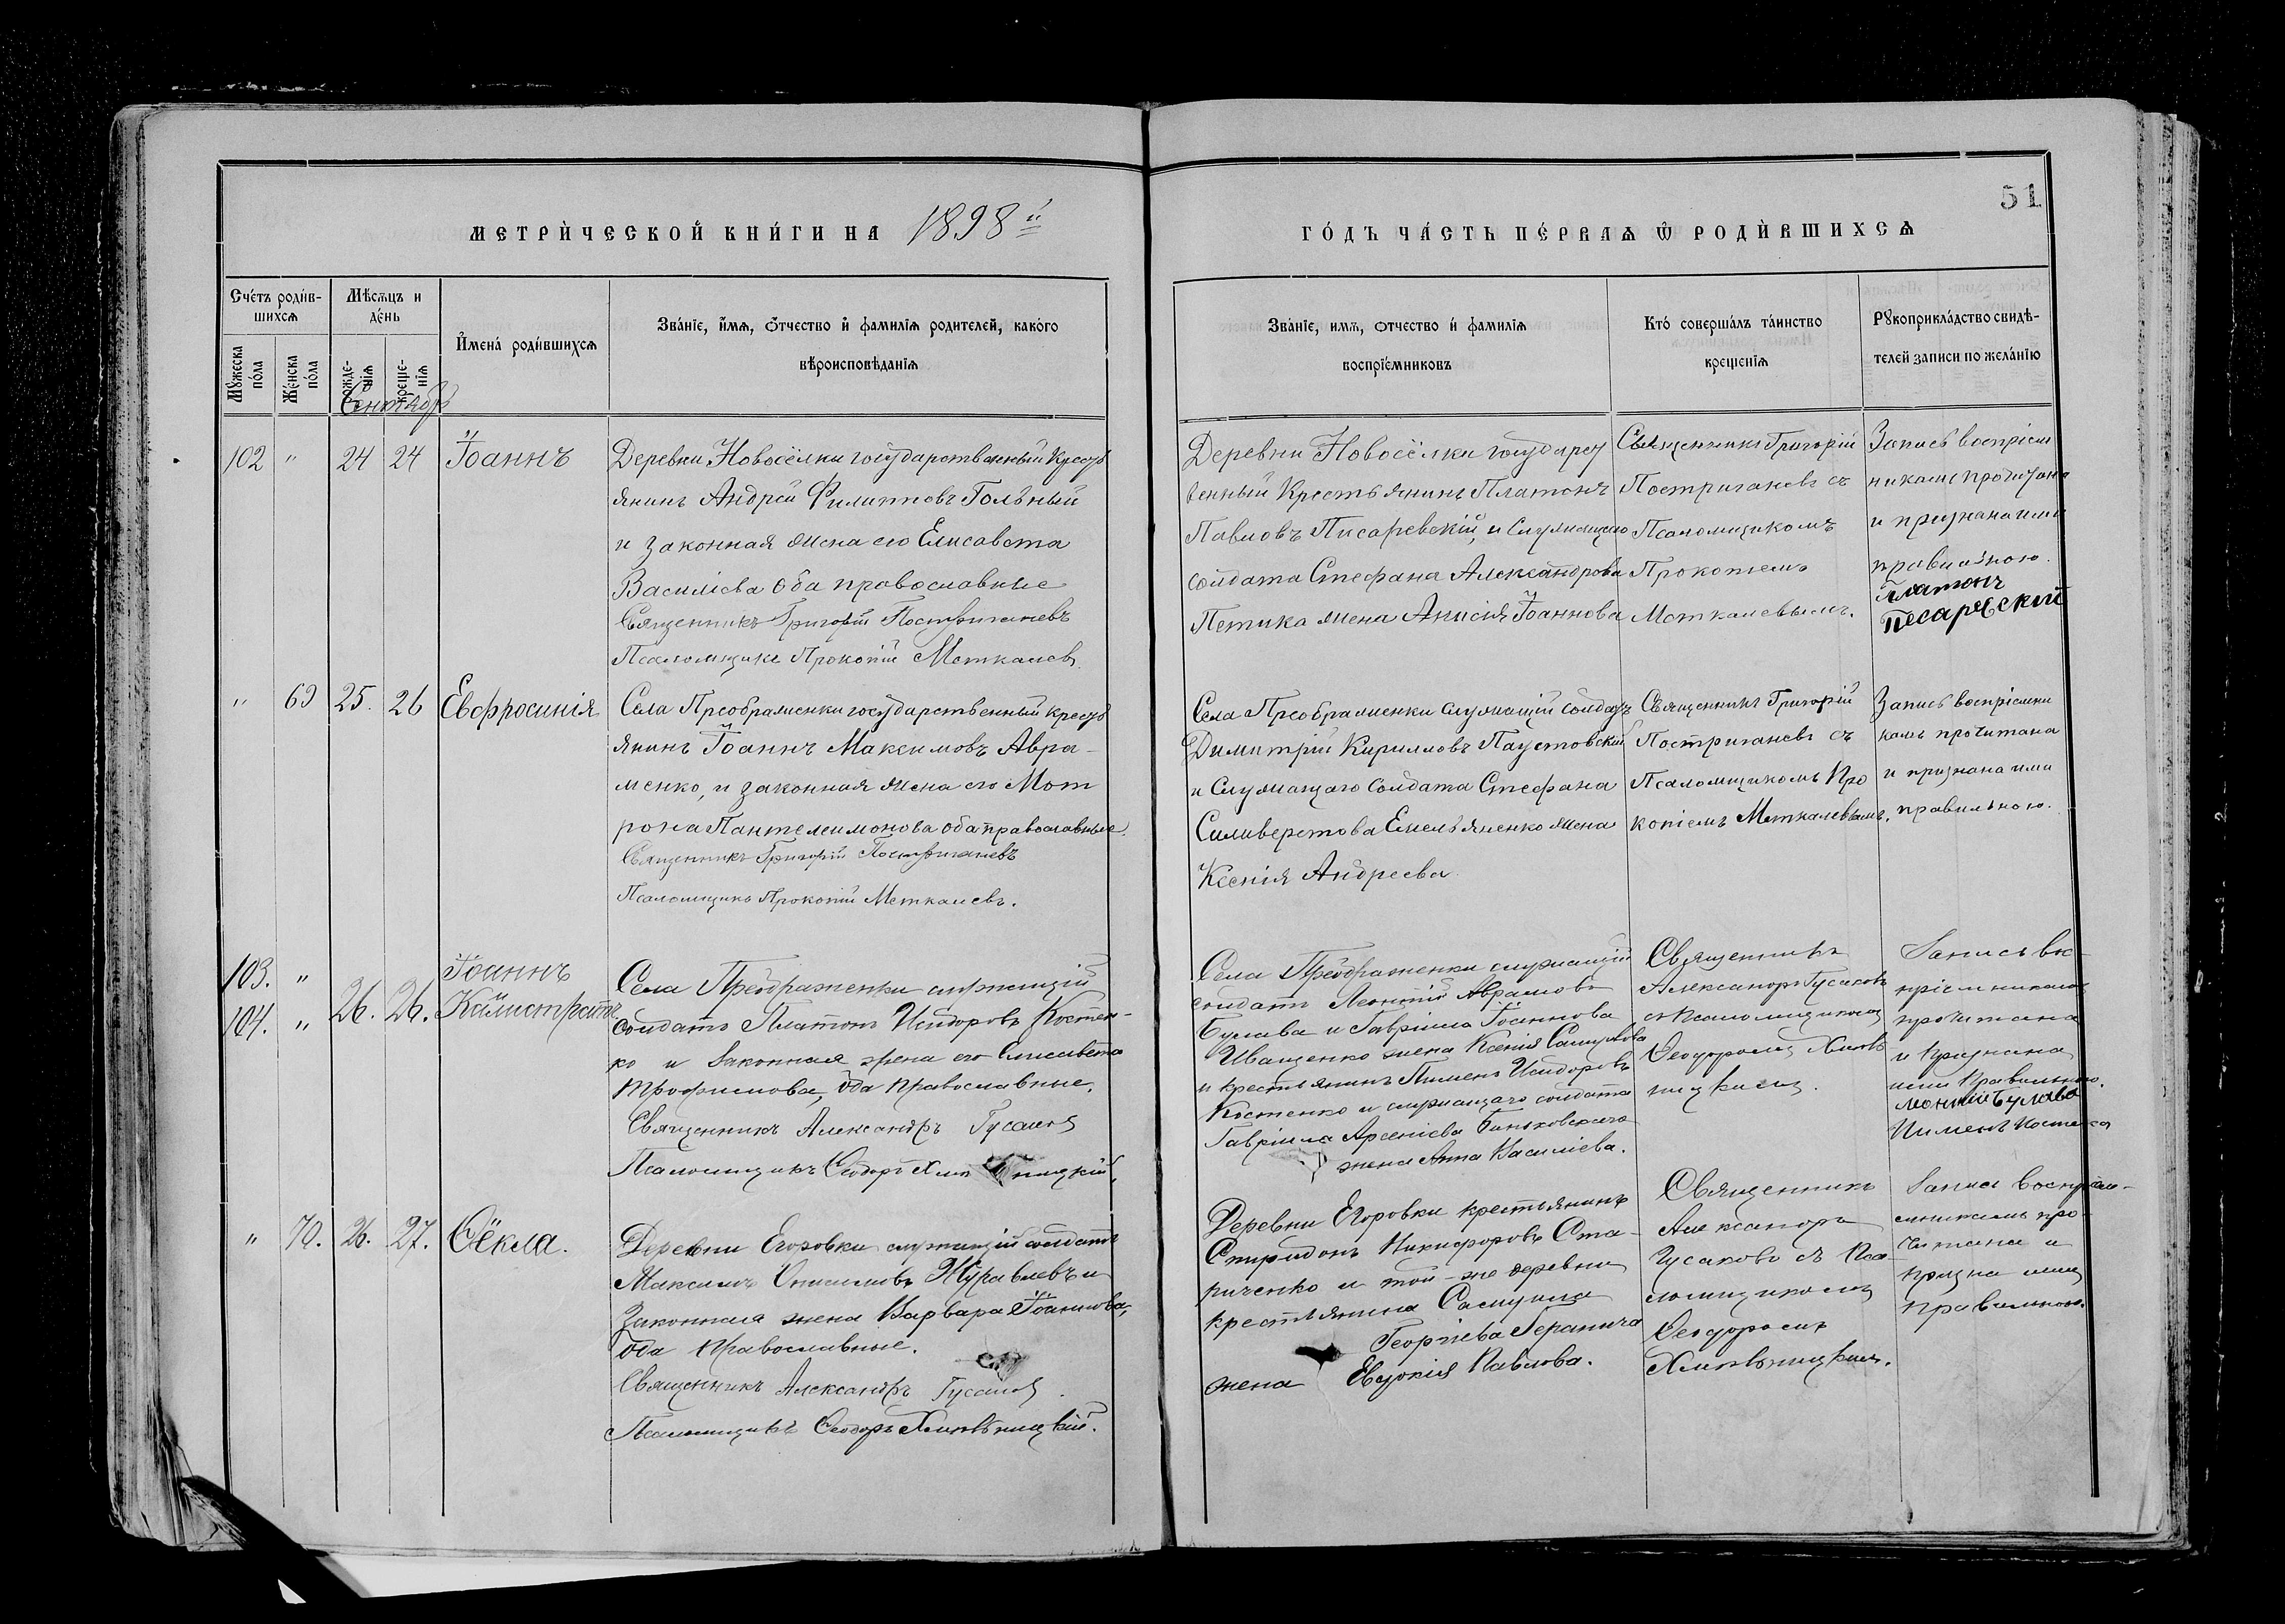 51
МЕТРИ́ЧЕСКОЙ КНИ́ГИ НА 1898й
ГО́ДЪ ЧА́СТЬ ПЕ́РВАѦ Ѿ РОДИ́ВШИХСѦ
Сче́тъ роди́в-
шихсѧ
Мѣ́сѧцъ и
де́нь
И҆мена̀ роди́вшихсѧ
Зва́нїе, и҆́мѧ, ѻ҆́тчество и҆ фами́лїѧ роди́телей, како́го
вѣроисповѣ́данїѧ
Мꙋ́жеска
по́ла
Же́нска
по́ла
рожде-
нїѧ
креще-
нїѧ
Сентябрь
Зва́нїе, имѧ, ѻтчество и́ фами́лїѧ
воспрїе́мниковъ
Кто́ соверша́лъ та́инство
крещенїѧ
Рꙋкоприкла́дство свидѣ́-
телей записи по жела́нїю
102 " 24 24 Іоаннъ
Деревни Новосёлки государственный крестъ
янинъ Андрей Филиповъ Гольный
и законная жена его Елисавета
Василіева оба православные
Священникъ Григорій Постриганевъ
Псаломщикъ Прокопій Меткалевъ.
Деревни Новосёлки государст
венный крестьянинъ Платонъ
Павловъ Писаревскій, и служащаго
солдата Стефана Александрова
Петика жена Анисія Іоаннова
Священникъ Григорій
Постриганевъ съ
Псаломщикомъ
Прокопіемъ
Меткалевымъ.
Запись воспріем
никами прочитана
и признана ими
правильною.
Платонъ
Песарѣвский
" 69 25. 26 Евфросинія
Села Преображенки государственный крестъ
янинъ Іоаннъ Максимовъ Авра-
менко, и законная жена его Мот
рона Пантелеимонова оба православные.
Священникъ Григорій Постриганевъ
Псаломщикъ Прокопій Меткалевъ.
Села Преображенки служащій солдатъ
Димитрій Кирилловъ Паустовскій
и служащаго солдата Стефана
Силиверстова Емельяненко жена
Ксенія Андреева
Священникъ Григорій
Постриганевъ съ
Псаломщикомъ Про
копіемъ Меткалевымъ.
Запись воспріемни
камъ прочитана
и признана ими
правильною.
103. " Іоаннъ
104. " 26. 26. Каллистратъ
Села Преображенки служащій
солдатъ Платонъ Исидоровъ Костен-
ко и законная жена его Елисавета
Трофимова, оба православные.
Священникъ Александръ Гусаковъ
Псаломщикъ Ѳеодоръ Хмѣльницкій.
Села Преображенки служащій
солдатъ Леонтій Аврамовъ
Булава и Гавріила Іоаннова
Иващенко жена Ксенія Самуилова
и крестьянинъ Пименъ Исидоровъ
Костенко и служащаго солдата
Гавріила Арсеніева Баньковскаго
жена Анна Василіева.
Священникъ
Александръ Гусаковъ
съ Псаломщикомъ
Ѳеодоромъ Хмѣль
ницкимъ.
Запись вос-
пріемникамъ
прочитана
и признана
ими правильною.
Пимент Костенко
" 70. 26. 27. Ѳёкла.
Деревни Егоровки служащій солдатъ
Максимъ Онисимовъ Журавлевъ и
законная жена Варвара Іоаннова,
оба православные.
Священникъ Александръ Гусаковъ.
Псаломщикъ Ѳеодоръ Хмѣльницкій.
Деревни Егоровки крестьянинъ
Спиридонъ Никифоровъ Ста-
риченко и той-же деревни
крестьянина Самуила
Георгіева Геранича
жена Евдокія Павлова.
Священникъ
Александръ
Гусаковъ съ Пса-
ломщикомъ
Ѳеодоромъ
Хмѣльницкимъ.
Запись воспріем-
никамъ про-
читана и
признана ими
правильною.